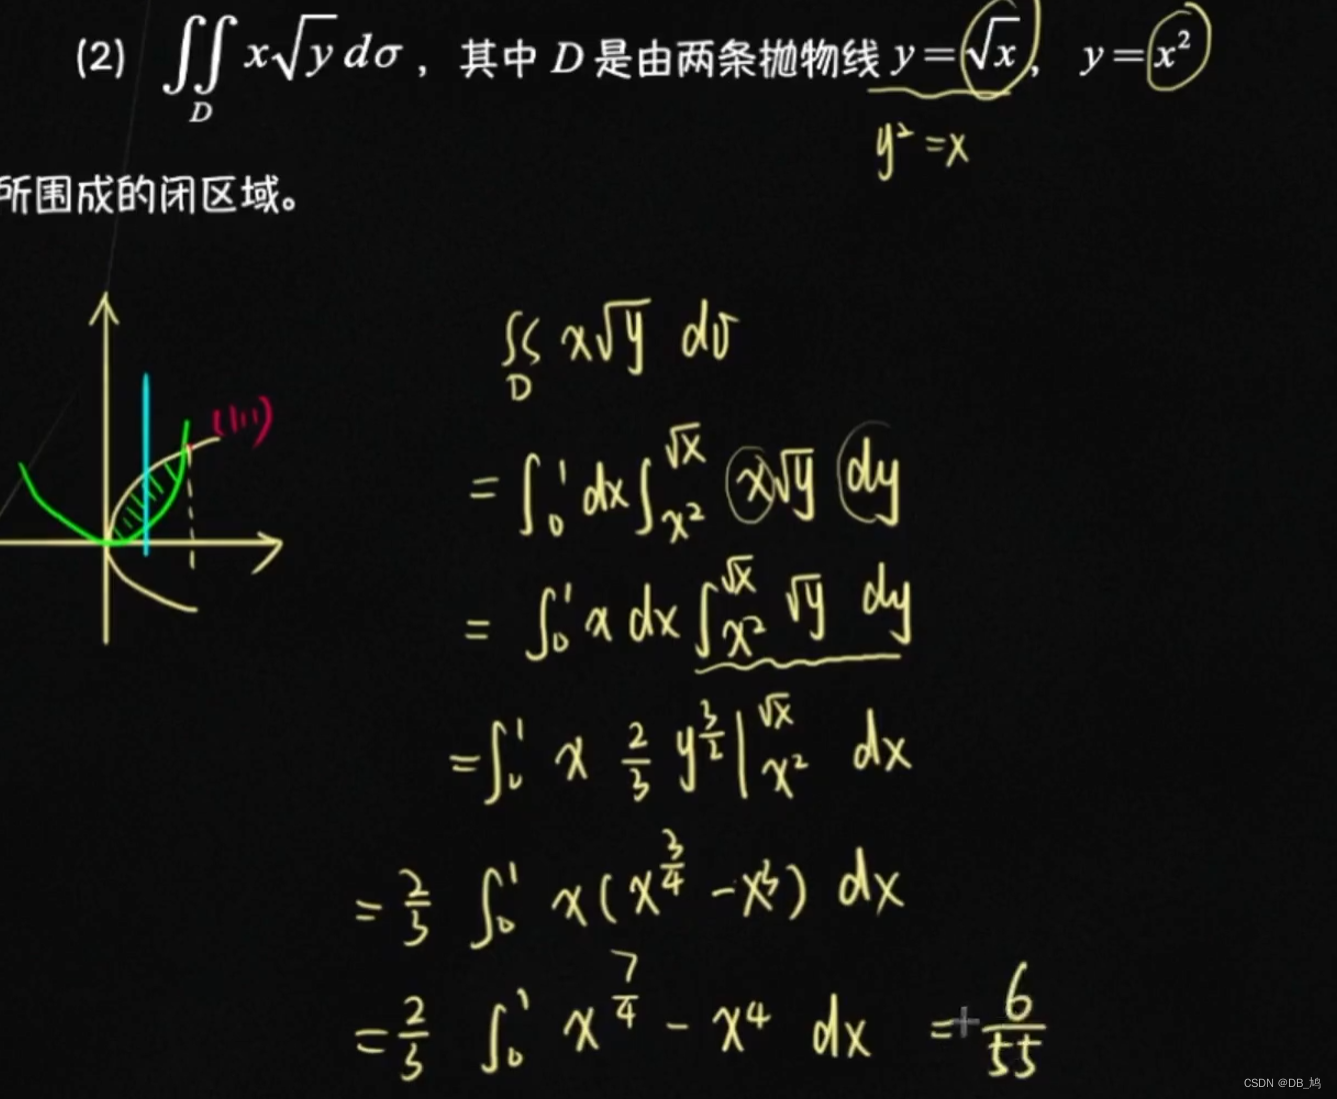 (2) ∬_D x√y dσ，其中 D 是由两条抛物线 y=√x，y=x²
y²=x
所围成的闭区域。
(1,1)
∬_D x√y dσ
=∫₀¹ dx ∫_{x²}^{√x} x√y dy
=∫₀¹ x dx ∫_{x²}^{√x} √y dy
=∫₀¹ x 2/3 y^{3/2} |_{x²}^{√x} dx
=2/3 ∫₀¹ x(x^{3/4} - x³) dx
=2/3 ∫₀¹ x^{7/4} - x⁴ dx = 6/55
CSDN @DB_鸠